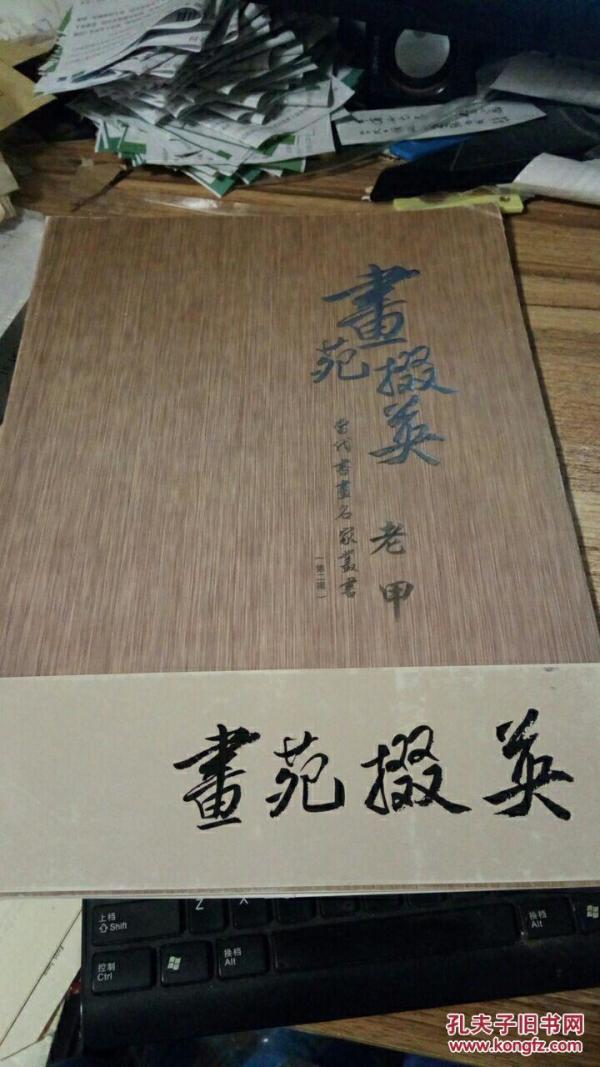 畫苑掇英
當代書畫名家叢書
(第二辑)
老甲
畫苑掇英
Z
X
上档
Shift
控制
Ctrl
换档
Alt
换档
Alt
孔夫子旧书网
www.kongfz.com